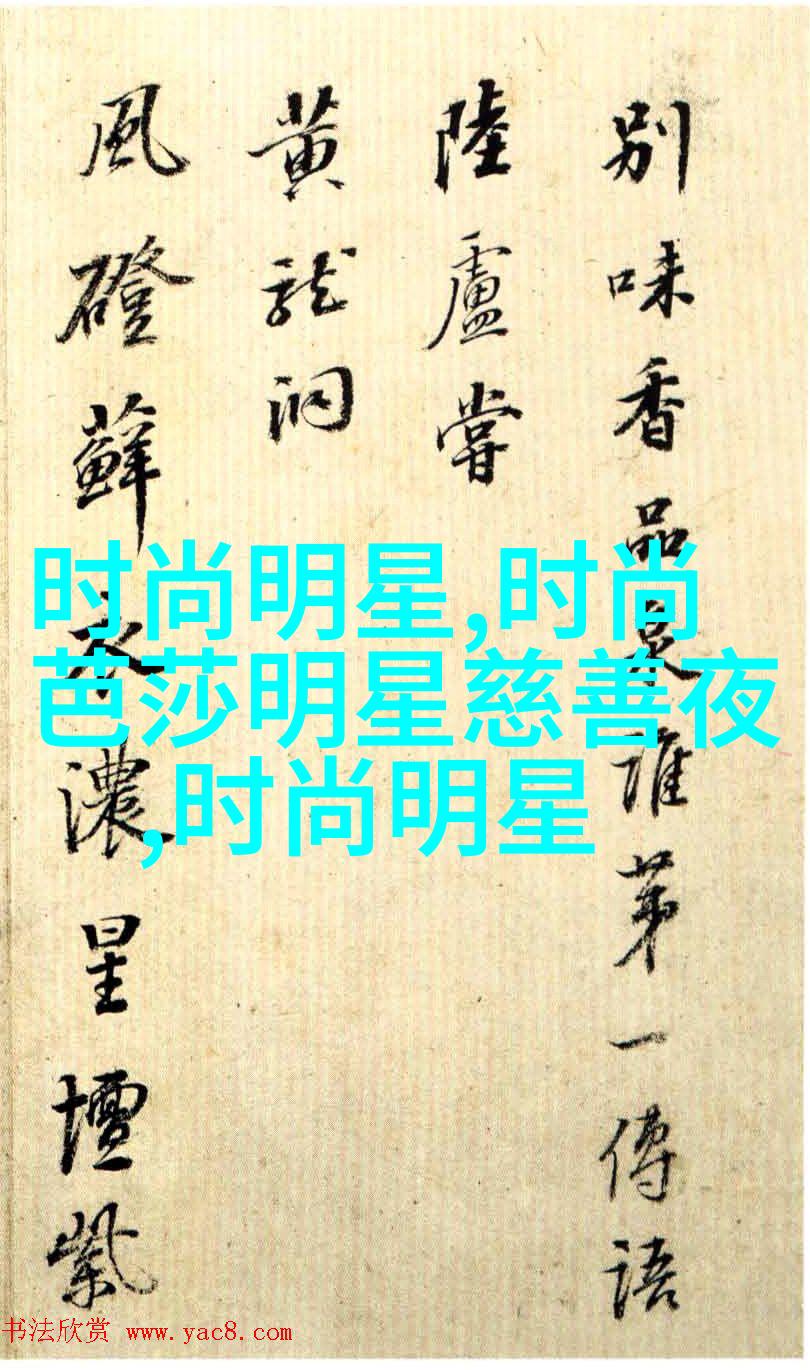 别味香品泉誰苐一傳語
陸廬嘗
黄龍洞
風磴蘚衣濃星壇紫
时尚明星,时尚
芭莎明星慈善夜
,时尚明星
书法欣赏 www.yac8.com